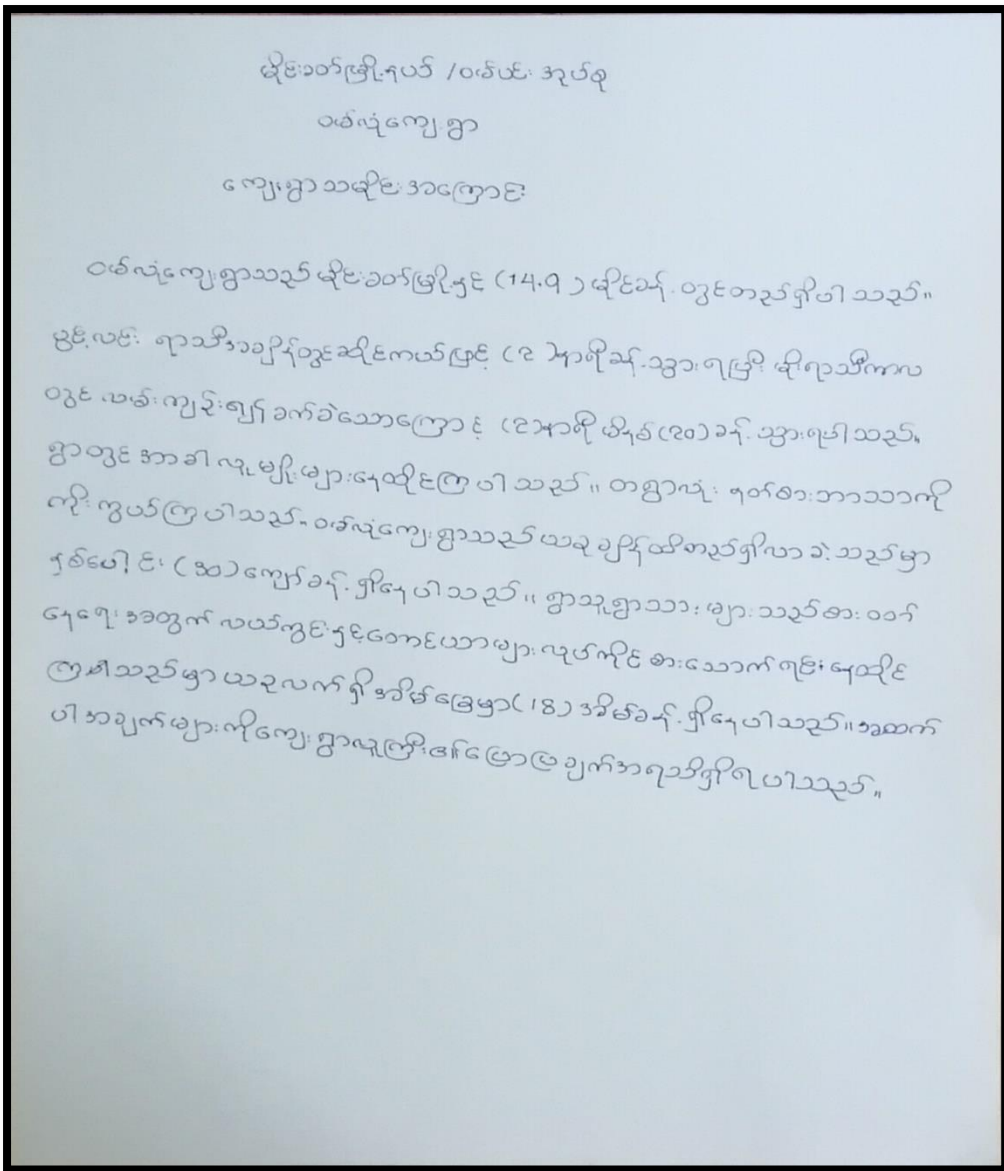 မိုင်းခတ်မြို့နယ် /ဝမ်ပင်းအုပ်စု
ဝမ်လုံကျေးရွာ
ကျေးရွာသမိုင်းအကြောင်း
ဝမ်လုံကျေးရွာသည် မိုင်းခတ်မြို့နှင့် (14.9) မိုင်ခန့်တွင်တည်ရှိပါသည်။
ပွင့်လင်းရာသီအချိန်တွင်ဆိုင်ကယ်ဖြင့် (၁)နာရီခန့်သွားရပြီး မိုးရာသီကာလ
တွင် လမ်းကျဉ်း၍ခက်ခဲသောကြောင့် (၁)နာရီမိနစ်(၃၀)ခန့်သွားရပါသည်။
ရွာတွင်အာခါလူမျိုးများနေထိုင်ကြပါသည်။ တရွာလုံး နတ်စားဘာသာကို
ကိုးကွယ်ကြပါသည်။ ဝမ်လုံကျေးရွာသည်ယခုချိန်ထိတည်ရှိလာခဲ့သည်မှာ
နှစ်ပေါင်း (၃၀)ကျော်ခန့်ရှိနေပါသည်။ ရွာသူရွာသားများသည်စားဝတ်
နေရေးအတွက်လယ်ကွင်းနှင့်တောင်ယာများလုပ်ကိုင်စားသောက်ရင်းနေထိုင်
ကြပါသည်မှာယခုလက်ရှိအိမ်ခြေမှာ(18)အိမ်ခန့်ရှိနေပါသည်။ အထက်
ပါအချက်များကိုကျေးရွာလူကြီး၏ပြောပြချက်အရသိရှိရပါသည်။